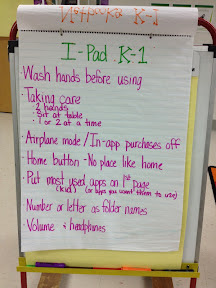 I-Pad K-1
·Wash hands before using
·Taking care
·2 hands
·Sit at table
·1 or 2 at a time
·Airplane mode/In-app purchases off
·Home button - No place like home
·Put most used apps on 1st page
(kid) (or apps you want them to use)
·Number or letter as folder names
·Volume & headphones